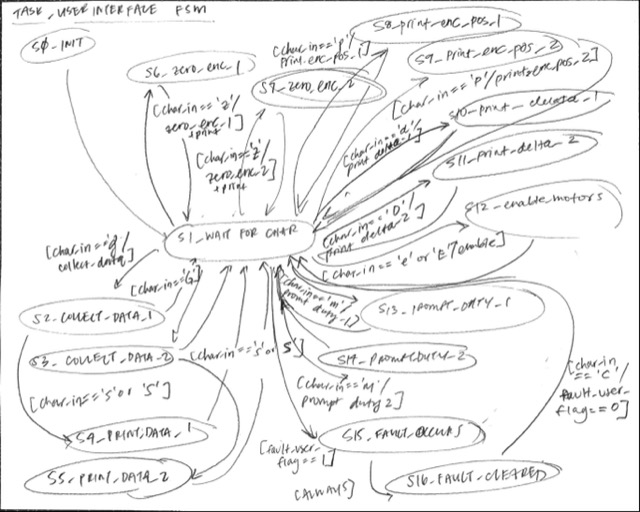 TASK_USER INTERFACE FSM
S0_INIT
S8_print_enc_pos_1
[char_in=='P'/
print_enc_pos_1]
S9_print_enc_pos_2
S6_zero_enc_1
S7_zero_enc_2
[char_in=='P'/print_enc_pos_2]
[char_in=='z'/
zero_enc_1]
+print
S10_print_delta_1
[char_in=='d'/
print delta_1]
[char_in=='Z'/
zero_enc_2]
+print
S11_print_delta_2
[char_in=='D'/
print delta_2]
S12_enable motors
S1_WAIT FOR CHAR
[char_in=='e' or 'E'/enable]
[char_in=='g'/
collect_data]
[char_in=='G']
[char_in=='m'/
prompt duty_1]
S13_PROMPT_DUTY_1
S2_COLLECT_DATA_1
S3_COLLECT_DATA_2
[char_in=='s' or 'S']
S14_PROMPT DUTY_2
[char_in
=='C'/
fault_user_
flag==0]
[char_in=='s' or 'S']
[char_in=='M'/
prompt duty2]
S4_PRINT DATA_1
S15_FAULT_OCCURS
[fault_user_
flag==1]
S5_PRINT_DATA_2
[ALWAYS]
S16_FAULT_CLEARED